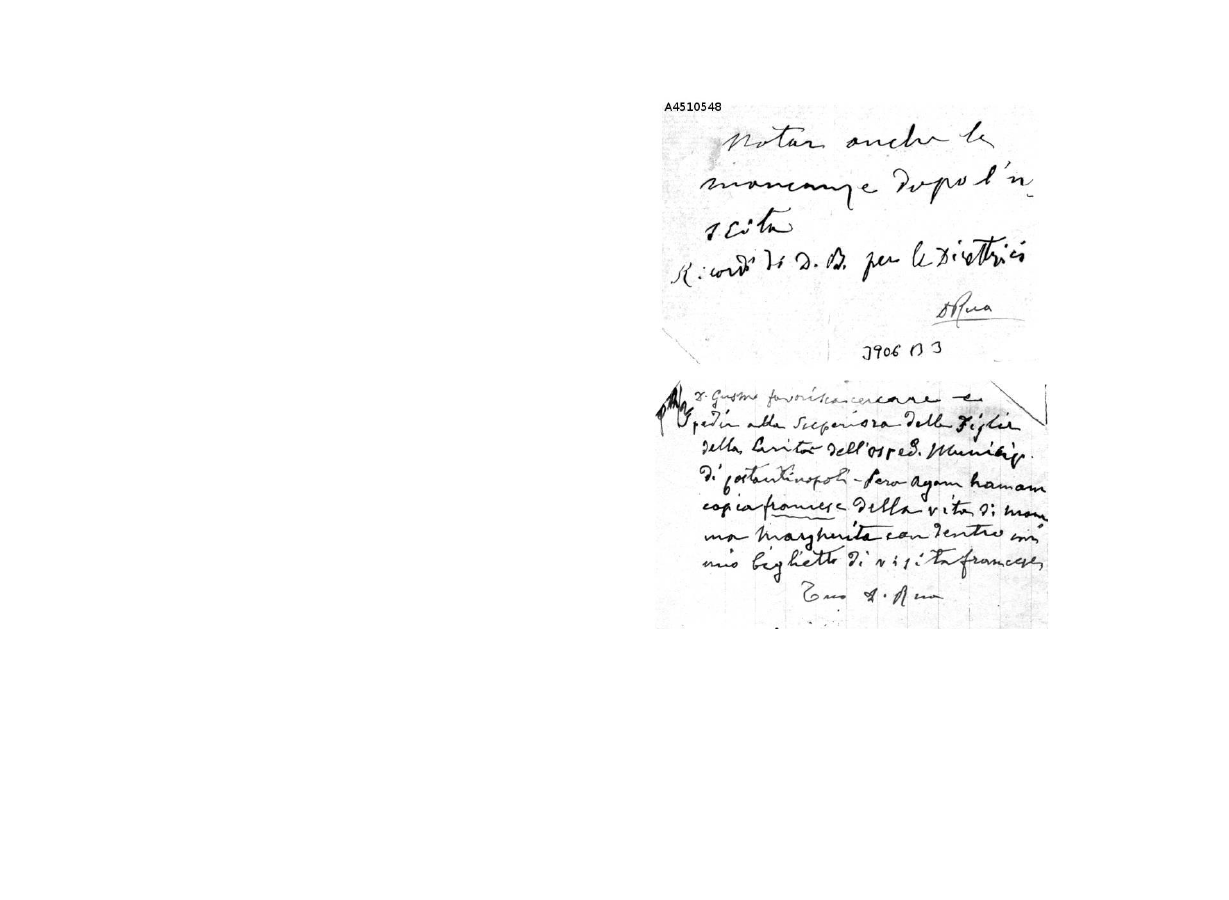 A4510548
Notar anche le
mancanze dopo l'u-
scita
Ricordi di D. B. per le Direttrici
D Rua
3906 B 3
D. Gusmo favorisca cercare e
spedir alla Superiora delle Figlie
della Carità dell'osped. Municip.
di Costantinopoli - Pera Agam hamam
copia francese della vita di mam
ma Margherita con dentro un
mio biglietto di visita francese
Tuo D. Rua